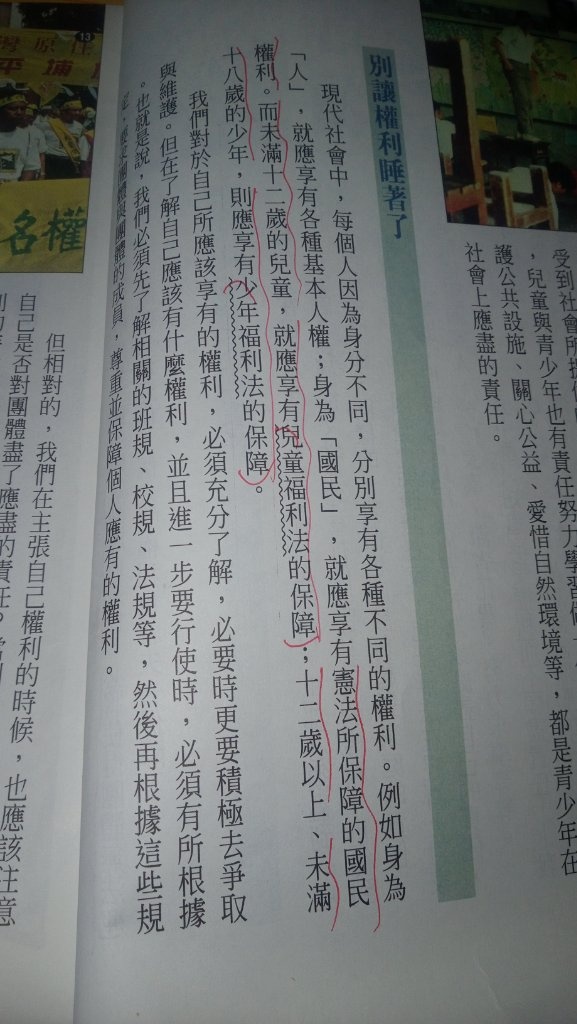 受到社會所提供
，兒童與青少年也有責任努力學習做
護公共設施、關心公益、愛惜自然環境等，都是青少年在
社會上應盡的責任。
別讓權利睡著了
現代社會中，每個人因為身分不同，分別享有各種不同的權利。例如身為
「人」，就應享有各種基本人權；身為「國民」，就應享有憲法所保障的國民
權利。而未滿十二歲的兒童，就應享有兒童福利法的保障；十二歲以上、未滿
十八歲的少年，則應享有少年福利法的保障。
我們對於自己所應該享有的權利，必須充分了解，必要時更要積極去爭取
與維護。但在了解自己應該有什麼權利，並且進一步要行使時，必須有所根據
。也就是說，我們必須先了解相關的班規、校規、法規等，然後再根據這些規
定，要求團體與團體的成員，尊重並保障個人應有的權利。
但相對的，我們在主張自己權利的時候，也應該注意
自己是否對團體盡了應盡的責任？
13
灣原住
平埔
名權